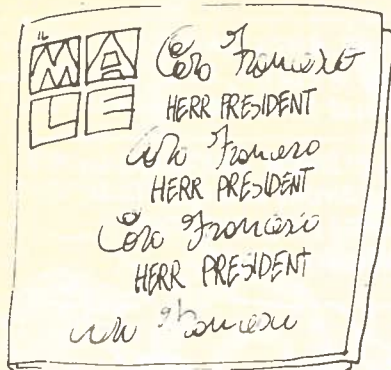 IL
MALE
Caro Francesco
HERR PRESIDENT
caro Francesco
HERR PRESIDENT
Caro Francesco
HERR PRESIDENT
caro Francesco